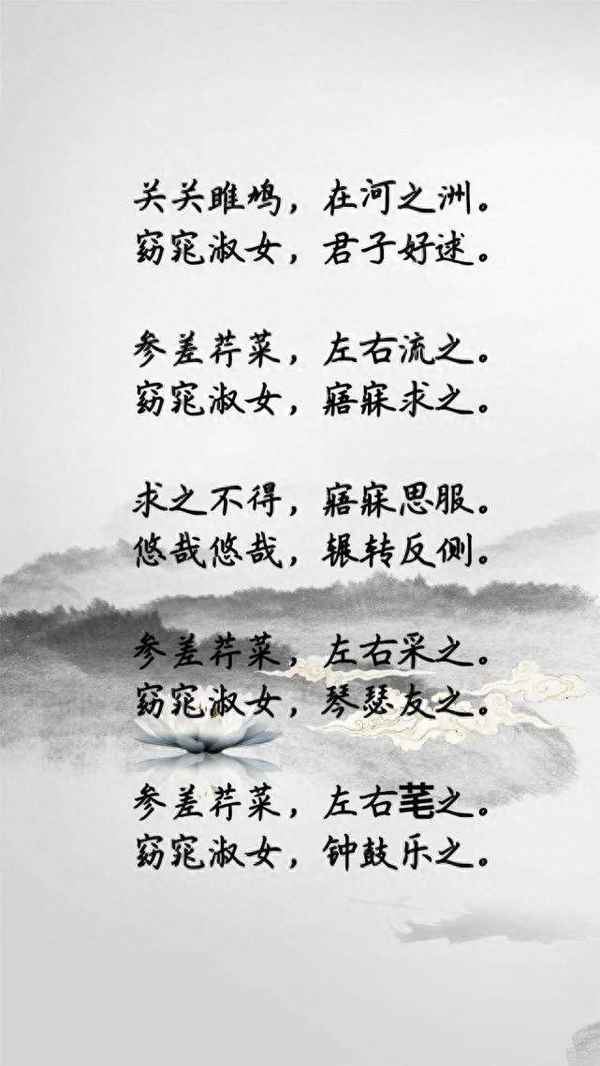 关关雎鸠，在河之洲。
窈窕淑女，君子好逑。
参差荇菜，左右流之。
窈窕淑女，寤寐求之。
求之不得，寤寐思服。
悠哉悠哉，辗转反侧。
参差荇菜，左右采之。
窈窕淑女，琴瑟友之。
参差荇菜，左右芼之。
窈窕淑女，钟鼓乐之。